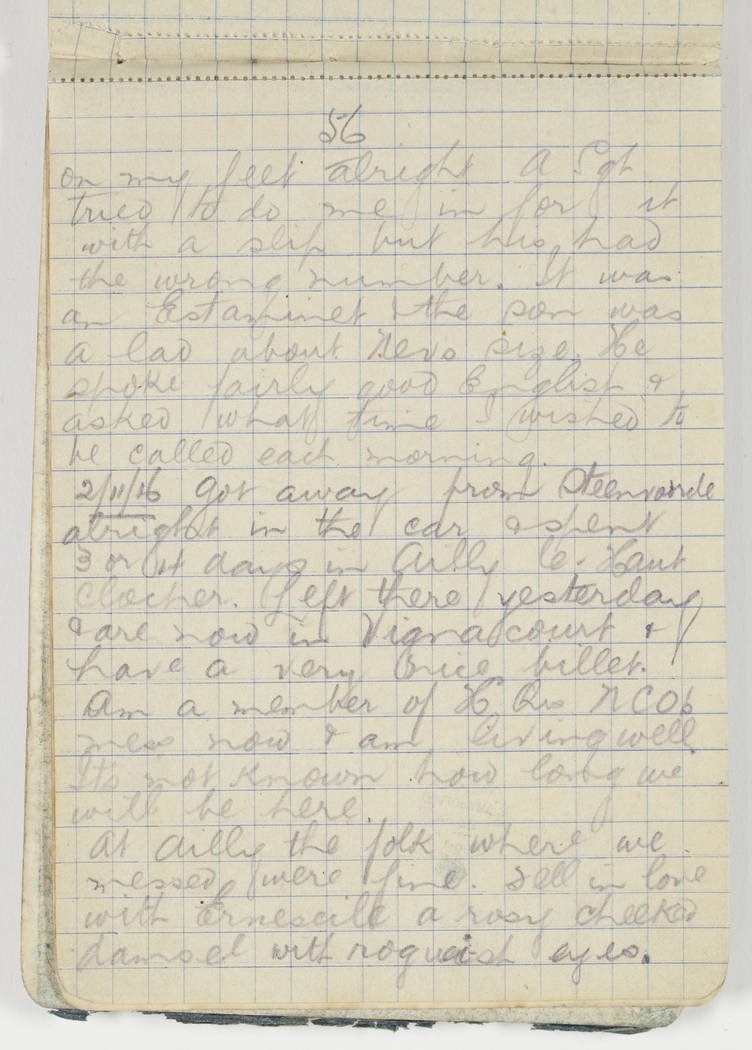 56
on my feet alright A Sgt
tried to do me in for it
with a slip but his had
the wrong number. It was
an Estaminet & the son was
a lad about Nevs size. He
spoke fairly good English &
asked what time I wished to
be called each morning.
2/11/16 Got away from Steenvoorde
alright in the car & spent
3 or 4 days in Ailly le-Haut
clocher. Left there yesterday
& are now in Vignacourt &
have a very nice billet.
Am a member of H Qrs NCOs
mess now & am living well.
Its not known how long we
will be here.
At Ailly the folk where we
messed were fine. Fell in love
with a rosy cheeked
damsel with roguish eyes.